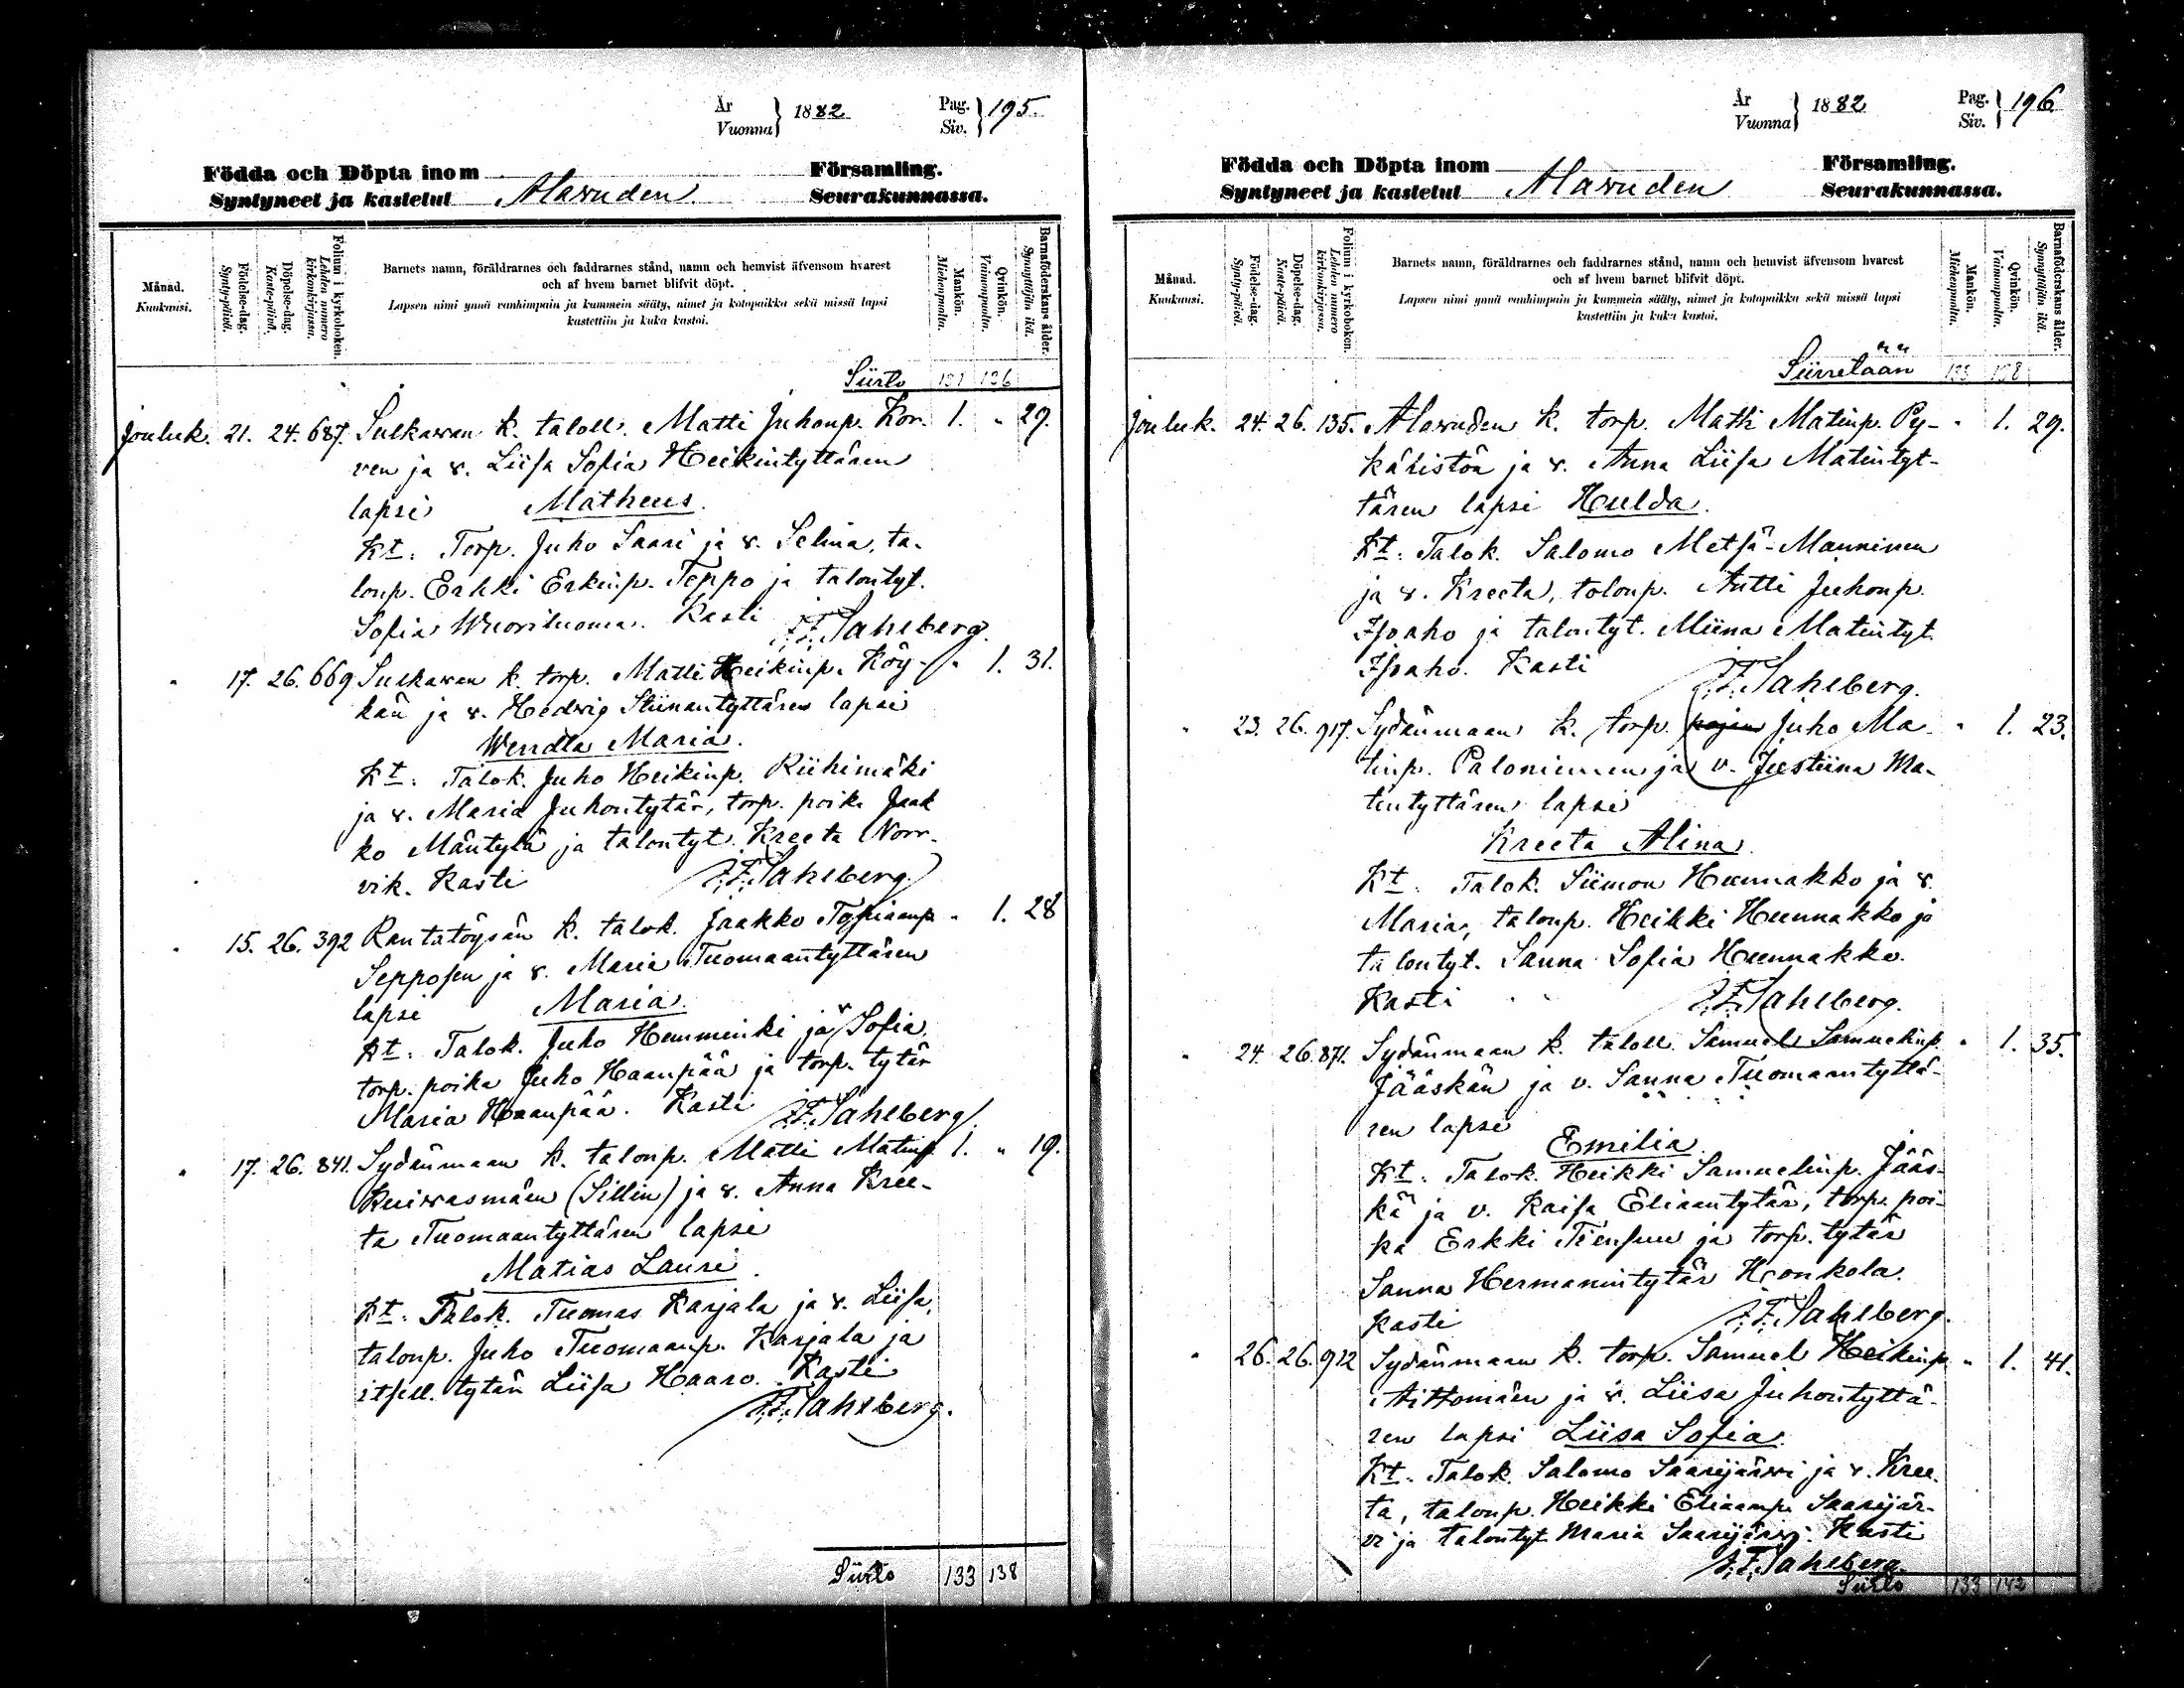 År
Vuonna } 1882
Pag.
Siv. } 195.
Födda och Döpta inom Församling.
Syntyneet ja kastetut Alavuden Seurakunnassa.
Månad.
Kuukausi.
Födelse-dag.
Synty-päivä.
Döpelse-dag.
Kaste-päivä.
Folium i kyrkoboken.
Lehden numero kirkonkirjassa.
Barnets namn, föräldrarnes och faddrarnes stånd, namn och hemvist äfvensom hvarest
och af hvem barnet blifvit döpt.
Lapsen nimi ynnä vanhimpain ja kummein sääty, nimet ja kotopaikka sekä missä lapsi
kastettiin ja kuka kastoi.
Mankön.
Miehenpuolta.
Qvinkön.
Vaimonpuolta.
Barnaföderskans ålder.
Synnyttäjän ikä.
Siirto 131 136
Jouluk. 21. 24. 687. Sulkavan k. taloll. Matti Juhonp. Kor- 1. " 29.
ven ja v. Liisa Sofia Heikintyttären
lapsi Matheus.
Kt: Torp. Juho Saari ja v. Selina, ta-
lonp. Erkki Erkinp. Teppo ja talontyt.
Sofia Wuorituoma. Kasti J.F. Sahlberg.
" 17. 26. 669 Sulkavan k. torp. Matti Heikinp. Köy- " 1. 31.
kän ja v. Hedvig Stiinantyttären lapsi
Wendla Maria.
Kt: Talok. Juho Heikinp. Riihimäki
ja v. Maria Juhontytär, torp. poika Jaak
ko Mäntylä ja talontyt. Kreeta Norr-
vik. Kasti J.F. Sahlberg
" 15. 26. 392 Rantatöysän k. talok. Jaakko Topiaanp. " 1. 28
Sepposen ja v. Maria Tuomaantyttären
lapsi Maria.
Kt: Talok. Juho Hemminki ja v Sofia
torp. poika Juho Haanpää ja torp. tytär
Maria Haanpää. Kasti J.F. Sahlberg.
" 17. 26. 841. Sydänmaan k. talonp. Matti Matinp. 1. " 19.
Kuivasmäen (Sillin) ja v. Anna Kree-
ta Tuomaantyttären lapsi
Matias Lauri.
Kt: Talok. Tuomas Karjala ja v. Liisa,
talonp. Juho Tuomaanp. Karjala ja
itsell. tytär Liisa Haaro. Kasti
J.F. Sahlberg.
Siirto 133 138
År
Vuonna } 1882
Pag.
Siv. } 196
Födda och Döpta inom Församling.
Syntyneet ja kastetut Alavuden Seurakunnassa.
Månad.
Kuukausi.
Födelse-dag.
Synty-päivä.
Döpelse-dag.
Kaste-päivä.
Folium i kyrkoboken.
Lehden numero kirkonkirjassa.
Barnets namn, föräldrarnes och faddrarnes stånd, namn och hemvist äfvensom hvarest
och af hvem barnet blifvit döpt.
Lapsen nimi ynnä vanhimpain ja kummein sääty, nimet ja kotopaikka sekä missä lapsi
kastettiin ja kuka kastoi.
Mankön.
Miehenpuolta.
Qvinkön.
Vaimonpuolta.
Barnaföderskans ålder.
Synnyttäjän ikä.
Siirretään 133 138
Jouluk. 24. 26. 135. Alavuden k. torp. Matti Matinp. Py- " 1. 29.
kälistön ja v. Anna Liisa Matintyt-
tären lapsi Hulda.
Kt: Talok. Salomo Metsä-Manninen
ja v. Kreeta, talonp. Antti Juhonp.
Isoaho ja talontyt. Miina Matintyt.
Isoaho. Kasti J.F. Sahlberg.
" 23. 26. 917. Sydänmaan k. torp. pojan Juho Ma- " 1. 23.
tinp. Paloniemen ja v. Justiina Ma-
tintyttären lapsi
Kreeta Alina.
Kt: Talok. Siimon Hunnakko ja v.
Maria, talonp. Heikki Hunnakko ja
talontyt. Sanna Sofia Hunnakko.
Kasti J.F. Sahlberg.
" 24. 26. 871. Sydänmaan k. taloll. Samuel Samuelinp. " 1. 35.
Jääskän ja v. Sanna Tuomaantyttä-
ren lapsi
Emilia.
Kt: Talok. Heikki Samuelinp. Jääs-
kä ja v. Kaisa Eliaantytär, torp. poi-
ka Erkki Tiensuu ja torp. tytär
Sanna Hermannintytär Honkola.
Kasti J.F. Sahlberg.
" 26. 26. 922 Sydänmaan k. torp. Samuel Heikinp. " 1. 41.
Aittomäen ja v. Liisa Juhontyttä-
ren lapsi Liisa Sofia.
Kt: Talok. Salomo Saarijärvi ja v. Kree-
ta, talonp. Heikki Eliaanp. Saarijär-
vi ja talontyt Maria Saarijärvi. Kasti
J.F. Sahlberg.
Siirto 133 142